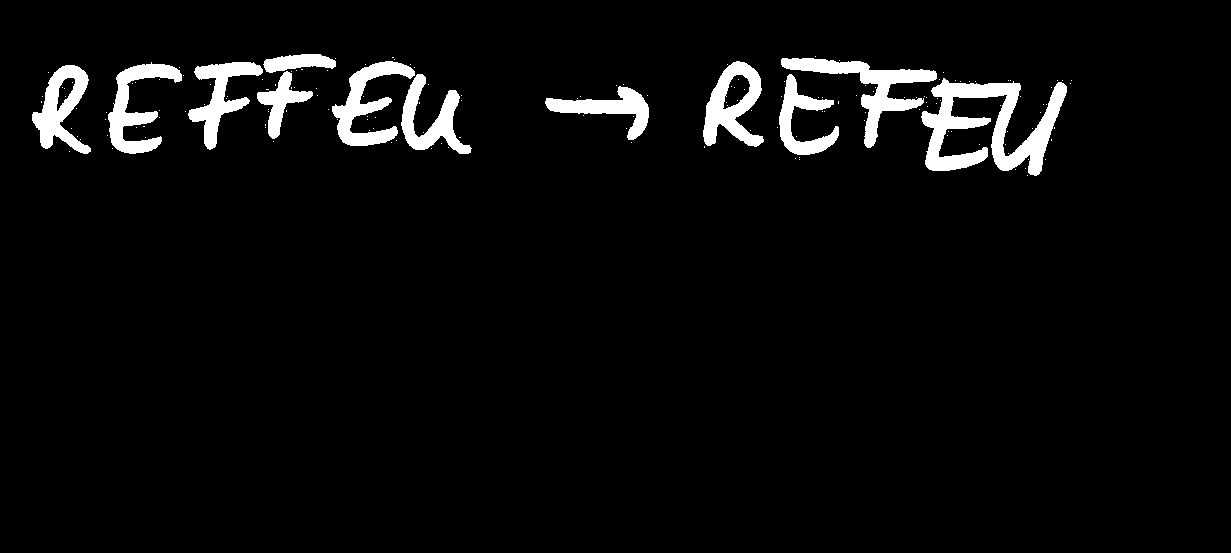 REFFEU → REFEU